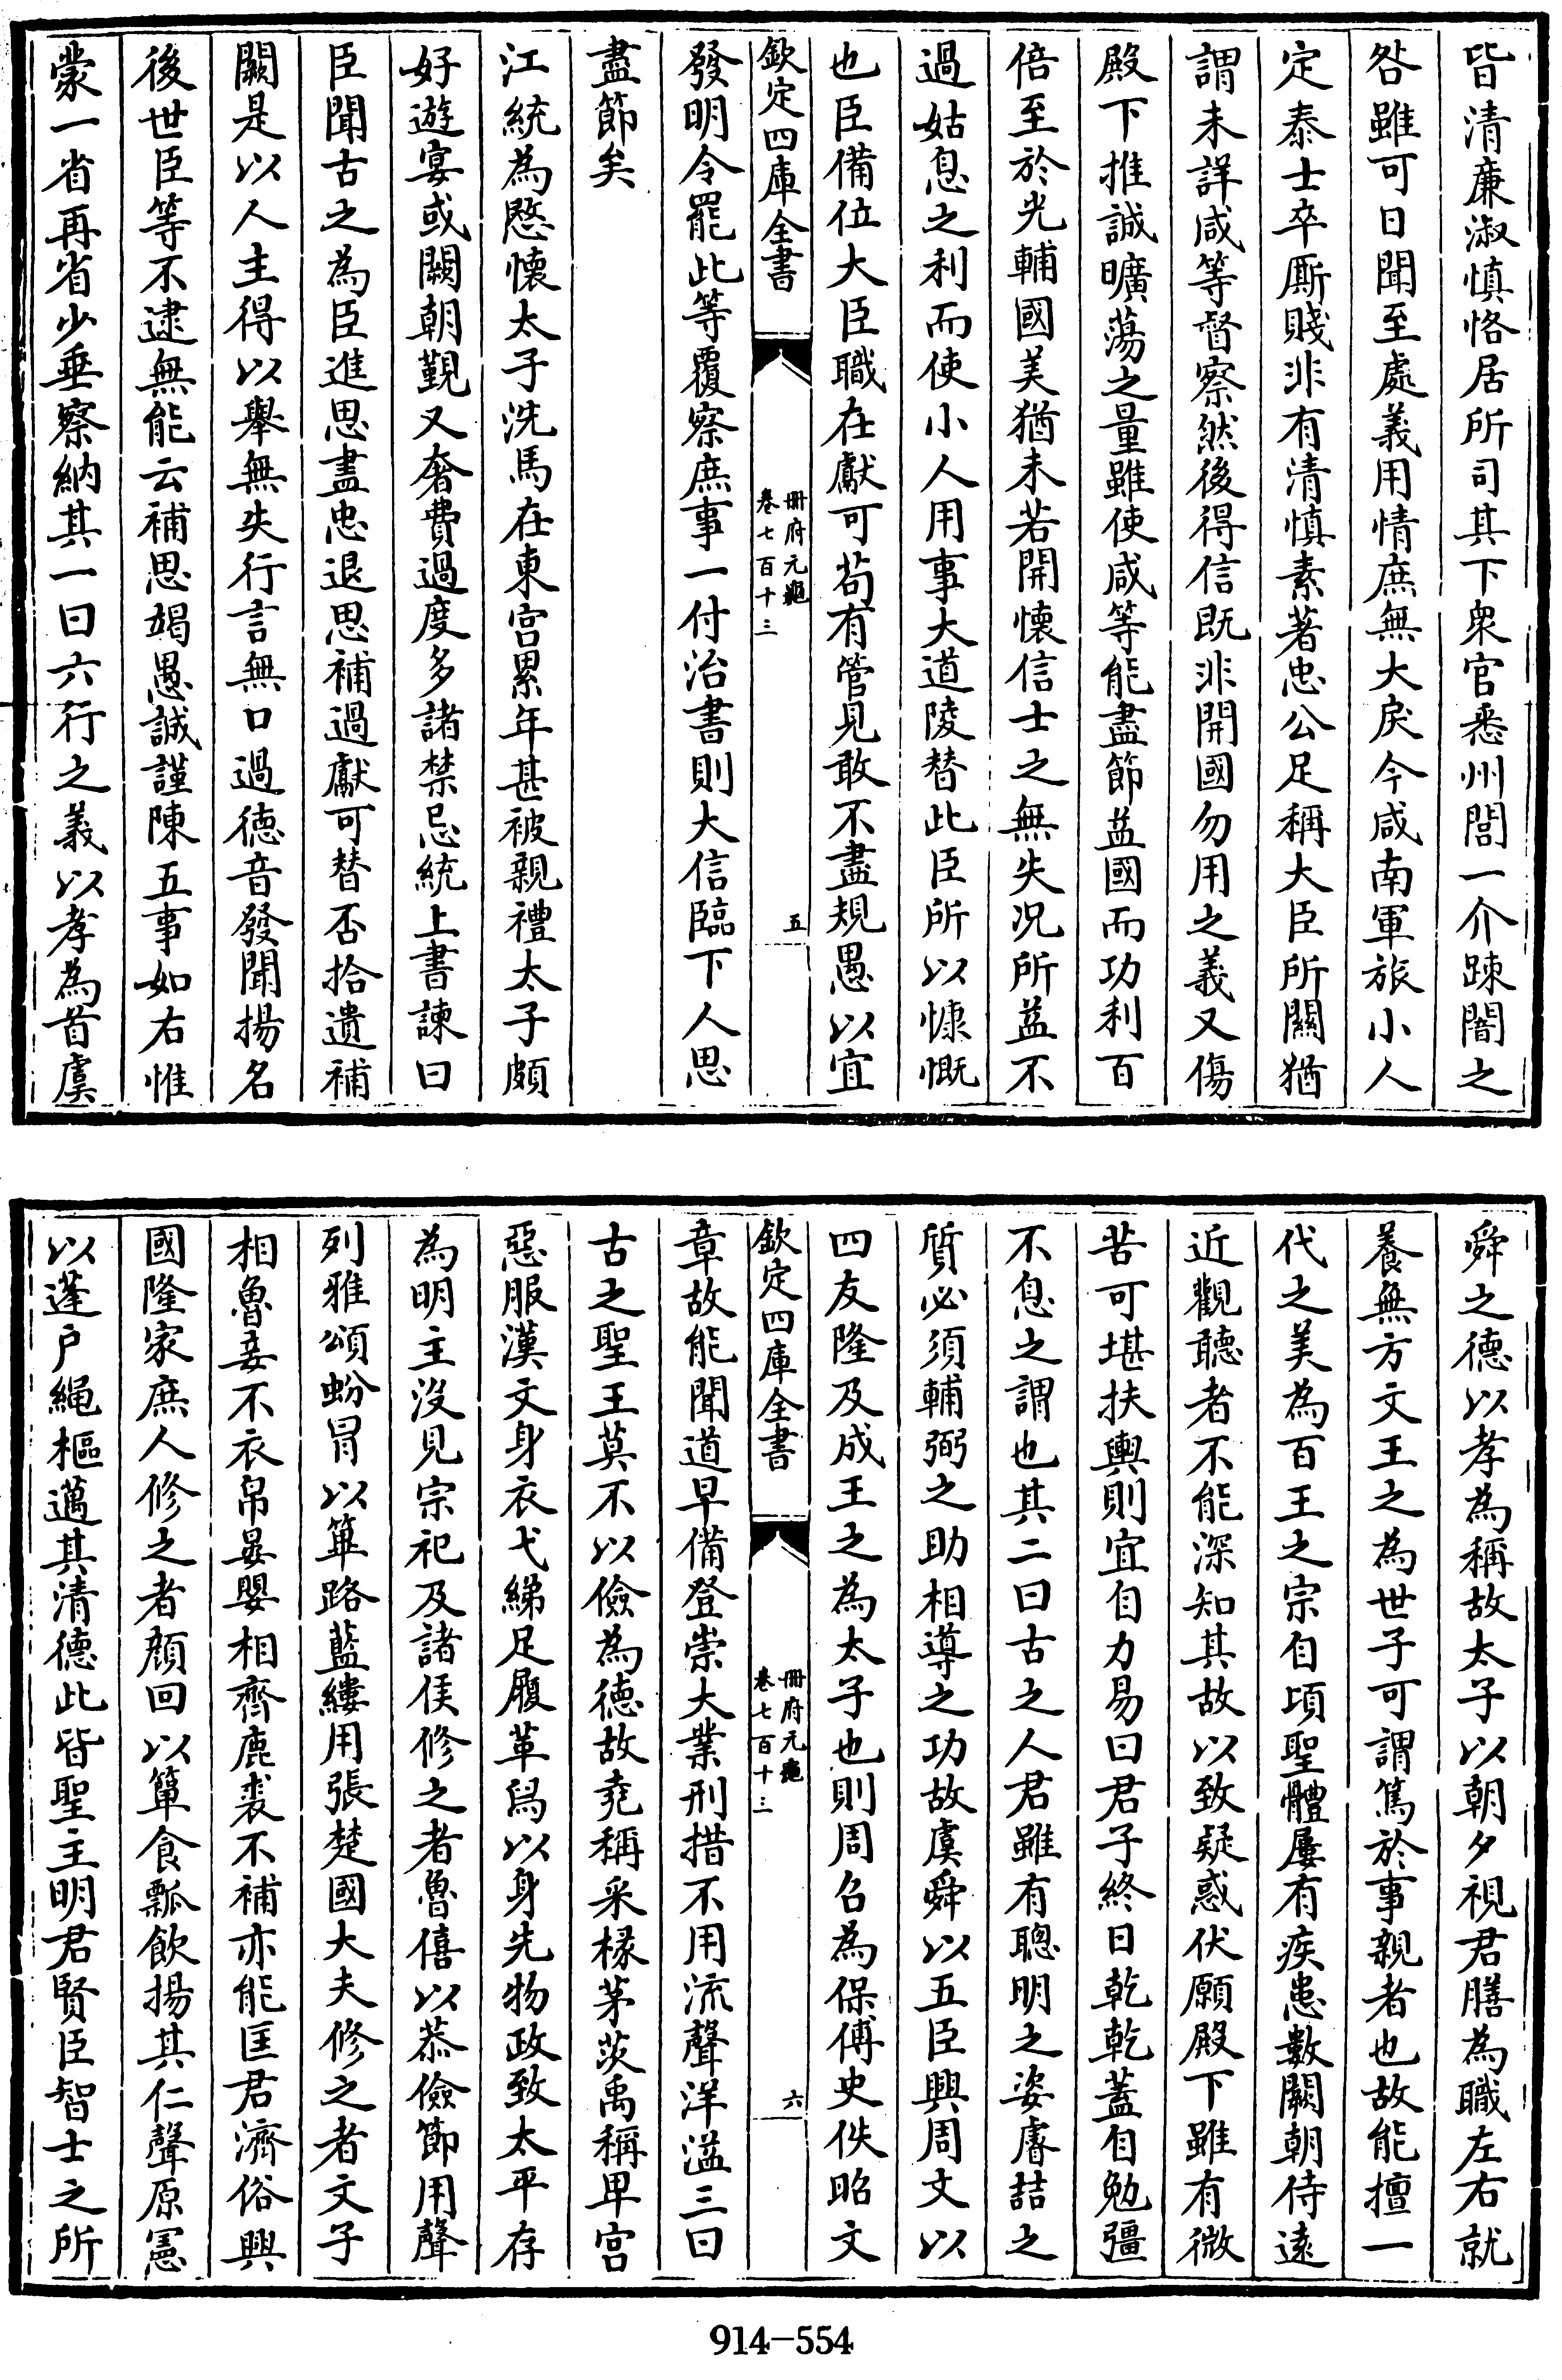 皆清廉淑慎恪居所司其下衆官悉州閭一介疎闇之
咎雖可日聞至處義用情庶無大戾今咸南軍旅小人
定泰士卒厮賤非有清慎素著忠公足稱大臣所關猶
謂未詳咸等督察然後得信既非開國勿用之義又傷
殿下推誠曠蕩之量雖使咸等能盡節益國而功利百
倍至於光輔國美猶未若開懷信士之無失况所益不
過姑息之利而使小人用事大道陵替此臣所以慷慨
也臣備位大臣職在獻可苟有管見敢不盡規愚以宜
欽定四庫全書
冊府元龜
卷七百十三
五
發明令罷此等覆察庶事一付治書則大信臨下人思
盡節矣
江統為愍懷太子洗馬在東宫累年甚被親禮太子頗
好遊宴或闕朝覲又奢費過度多諸禁忌統上書諫曰
臣聞古之為臣進思盡忠退思補過獻可替否拾遺補
闕是以人主得以舉無失行言無口過德音發聞揚名
後世臣等不逮無能云補思竭愚誠謹陳五事如右惟
蒙一省再省少垂察納其一曰六行之義以孝為首虞
舜之德以孝為稱故太子以朝夕視君膳為職左右就
養無方文王之為世子可謂篤於事親者也故能擅一
代之美為百王之宗自頃聖體屢有疾患數闕朝侍遠
近觀聽者不能深知其故以致疑惑伏願殿下雖有微
苦可堪扶輿則宜自力易曰君子終日乾乾蓋自勉彊
不息之謂也其二曰古之人君雖有聰明之姿睿喆之
質必須輔弼之助相導之功故虞舜以五臣興周文以
四友隆及成王之為太子也則周召為保傅史佚昭文
欽定四庫全書
冊府元龜
卷七百十三
六
章故能聞道早備登崇大業刑措不用流聲洋溢三曰
古之聖王莫不以儉為德故堯稱采椽茅茨禹稱卑宫
惡服漢文身衣弋綈足履革舄以身先物政致太平存
為明主没見宗祀及諸侯修之者魯僖以恭儉節用聲
列雅頌蚡冒以篳路藍縷用張楚國大夫修之者文子
相魯妾不衣帛晏嬰相齊鹿裘不補亦能匡君濟俗興
國隆家庶人修之者顔回以簞食瓢飲揚其仁聲原憲
以蓬户繩樞邁其清德此皆聖主明君賢臣智士之所
914-554